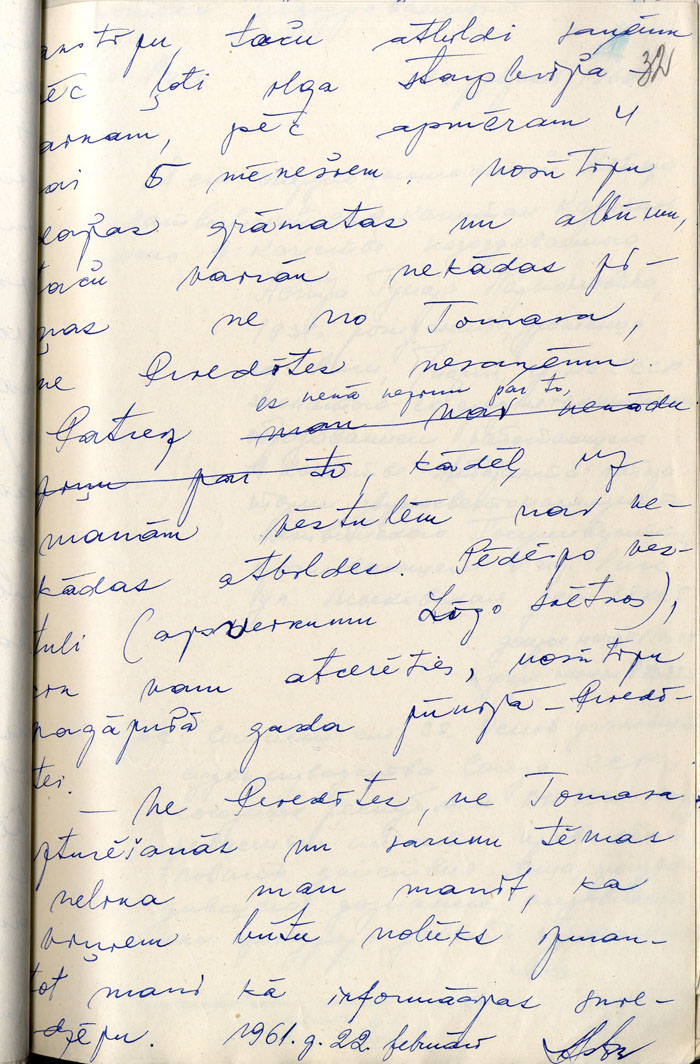 taču atbildi saņēmu
32
pēc ļoti ilga starpbrīža –
pēc apmēram 4
vai 5 mēnešiem. Nosūtīju
dažas grāmatas un albumu,
taču vairāk nekādas zi–
ņas ne no Tomasa,
ne Biedrītes nesaņēmu.
es nenā nezinu par to,
Patiez man nav nekādu
ziņu par to, kādēļ uz
manām vēstulēm nav ne–
kādas atbildes. Pēdējo vēs–
tuli (apsveikumu Līgo svētkos),
cik varu atcerēties, nosūtīju
pagājušā gada jūnijā –
tei.
– Ne ne Tomasa
uzturēšanās un sarunu tēmas
nelika man manīt, ka
viņiem būtu nolūks izman–
tot mani kā informācijas snie–
dzēju. 1961.g. 22. februārī